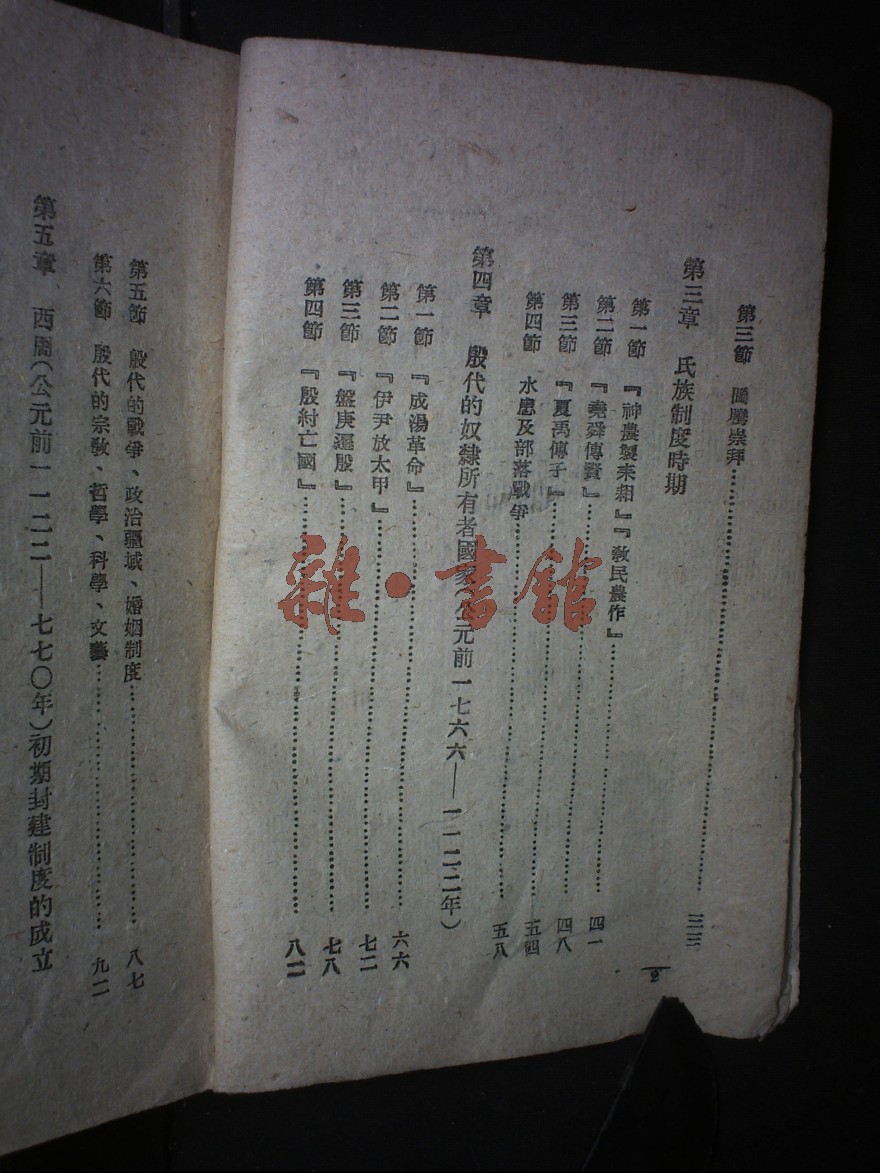 第三節　圖騰崇拜……三三
第三章　氏族制度時期
第一節　『神農製耒耜』『敎民農作』……四一
第二節　『堯舜傳賢』……四八
第三節　『夏禹傳子』……五四
第四節　水患及部落戰爭……五八
第四章　殷代的奴隸所有者國家(公元前一七六六—一一二二年)
第一節　『成湯革命』……六六
第二節　『伊尹放太甲』……七二
第三節　『盤庚遷殷』……七八
第四節　『殷紂亡國』……八二
2
第五節　殷代的戰爭、政治疆域、婚姻制度……八七
第六節　殷代的宗敎、哲學、科學、文藝……九二
第五章　西周(公元前一一二二—七七〇年)初期封建制度的成立
雜·書館